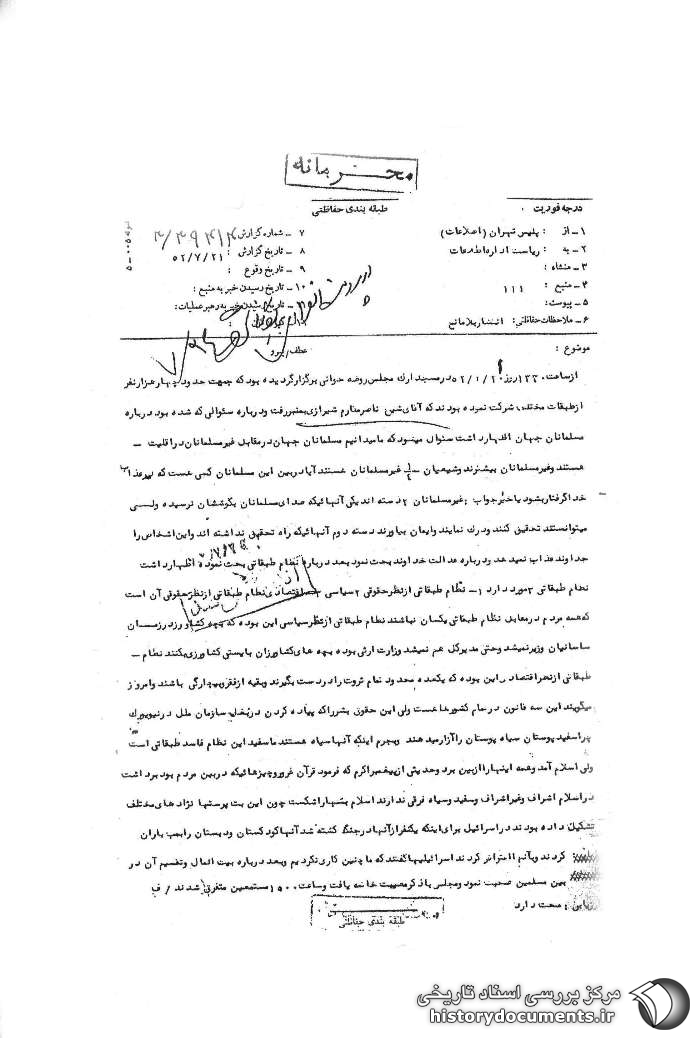 محرمانه
درجه فوریت طبقه بندی حفاظتی
۱ـ از : پلیس تهران (اطلاعات) ۷ ـ شماره گزارش
۲ـ به : ریاست اداره اطلاعات ۸ ـ تاریخ گزارش : ۵۲/۷/۲۱
۳ـ منشاء : ۹ ـ تاریخ وقوع :
۴ـ منبع : ۱۱۱ ۱۰ـ تاریخ رسیدن خبر به منبع :
۵ ـ پیوست : تاریخ رسیدن خبر به رهبر عملیات:
۶ـ ملاحظات حفاظتی: انتشار بلامانع
موضوع : عطف/پیرو
از ساعت ۱۳۳۰ روز در مسجد ارك مجلس روضه خوانی برگزار گردیده بود که جمعیت حدود چهار هزار نفر
از طبقات مختلف شرکت نموده بودند که آقای شیخ ناصر مکارم شیرازی بمنبر رفت و درباره سئوالی که شده بود درباره
مسلمانان جهان اظهار داشت سئوال مینمود که ما میدانیم مسلمانان جهان در مقابل غیر مسلمانان در اقلیت ـ
هستند و غیر مسلمانان بیشترند و شیعیان غیر مسلمانان هستند آیا در بین این مسلمانان کمی هست که غیر عذاب
خدا گرفتار بشود یا خیر جواب : غیر مسلمانان ۲ دسته اند یکی آنهائیکه صدای مسلمانان بگوششان نرسیده ولی
میتوانستند تحقیق کنند و درك نمایند و ایمان بیاورند دسته دوم آنهائیکه راه تحقیق نداشته اند و این اشخاص را
خداوند عذاب نمیدهد و درباره عدالت خداوند بحث نمود بعد درباره نظام طبقاتی بحث نموده اظهار داشت
نظام طبقاتی ۳ مورد دارد ۱ـ نظام طبقاتی از نظر حقوقی ۲ سیاسی اقتصادی نظام طبقاتی از نظر حقوقی آن است
که همه مردم در مقابل نظام طبقاتی یکسان نباشند نظام طبقاتی از نظر سیاسی این بوده که بچه کشاورز در زمان
ساسانیان وزیر نمیشد و حتی مدیر کل هم نمیشد وزارت ارثی بوده بچه های کشاورزان بایستی کشاورزی بکنند نظام ـ
طبقاتی از نظر اقتصادی این بوده که یکعده معدود تمام ثروت را در دست بگیرند و بقیه از فقر و بیچارگی باشند و امروز
میگویند این سه قانون در تمام کشورها هست ولی این حقوق بشر را که پیاده کردن در بغل سازمان ملل در نیویورك
چرا سفید پوستان سیاه پوستان را آزار میدهند وبجرم اینکه آنها سیاه هستند متأسفید این نظام فاسد طبقاتی است
ولی اسلام آمد و همه اینها را از بین برد و حدیثی از پیغمبر اکرم که فرمود قرآن غرور و چیزهائیکه در بین مردم بود برداشت
در اسلام اشراف و غیر اشراف و سفید و سیاه فرقی ندارند اسلام بتها را شکست چون این بت پرستها نژادهای مختلف
تشکیل داده بودند در اسرائیل برای اینکه یکنفر از آنها در جنگ کشته شد آنها کودکستان و دبستان را بمب باران
کردند و بآنهم اعتراض کردند اسرائیلیها گفتند که ما چنین کاری نکردیم و بعد درباره بیت المال و تقسیم آن در
بین مسلمین صحبت نمود و مجلس با ذکر مصیبت خاتمه یافت و ساعت ۱۵۰۰ مستمعین متفرق شدند / ف
صحت دارد
طبقه بندی حفاظتی
مرکز بررسی اسناد تاریخی
historydocuments.ir